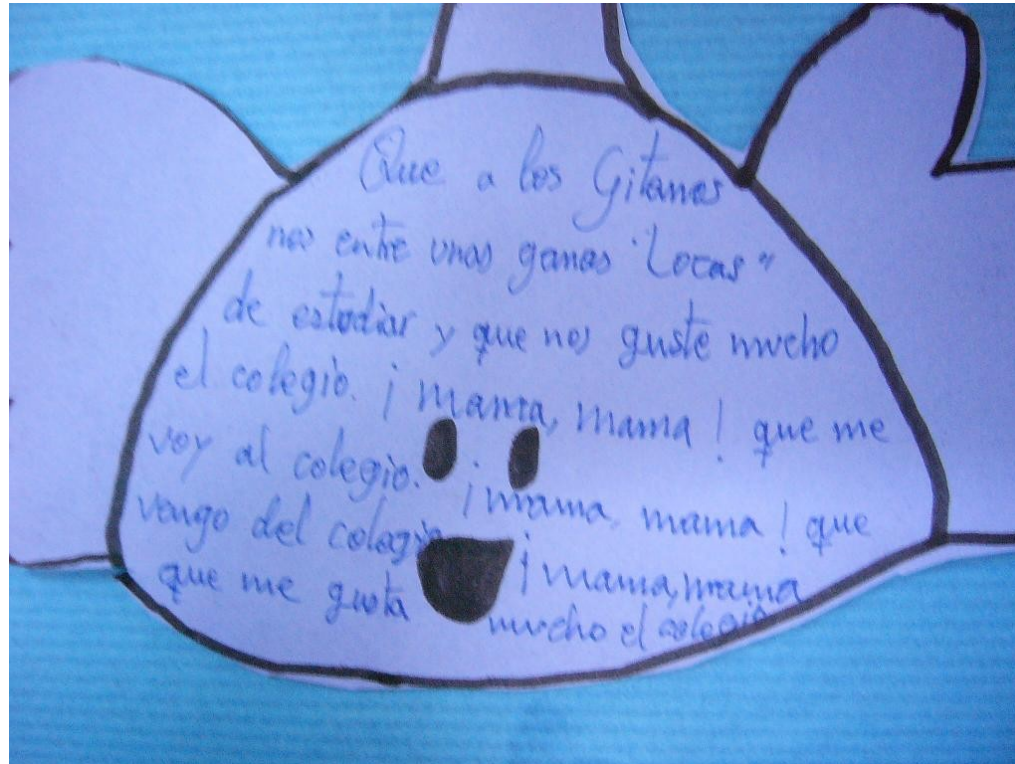 Que a los Gitanos
nos entre unas ganas "Locas"
de estudiar y que nos guste mucho
el colegio. ¡mama, mama! que me
voy al colegio. ¡mama, mama! que
vengo del colegio ¡mama, mama
que me gusta mucho el colegio